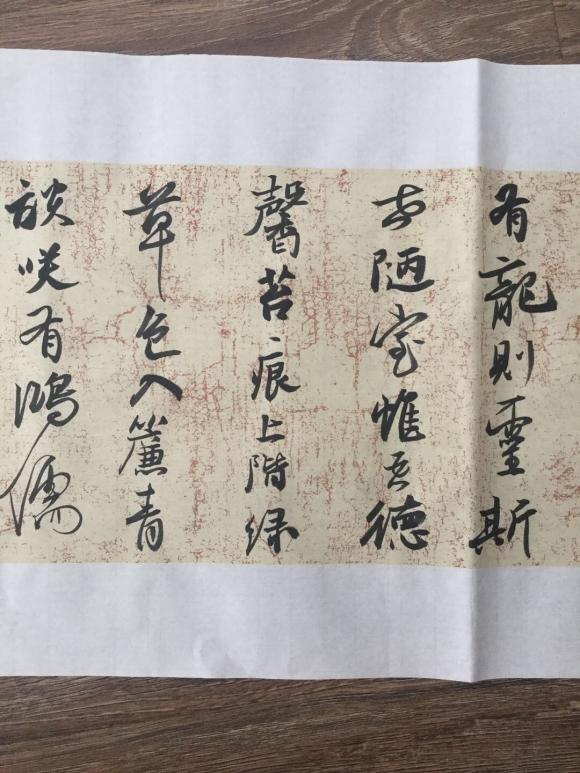 有龍則靈斯
是陋室惟吾德
馨苔痕上階緑
草色入簾青
談咲有鴻儒